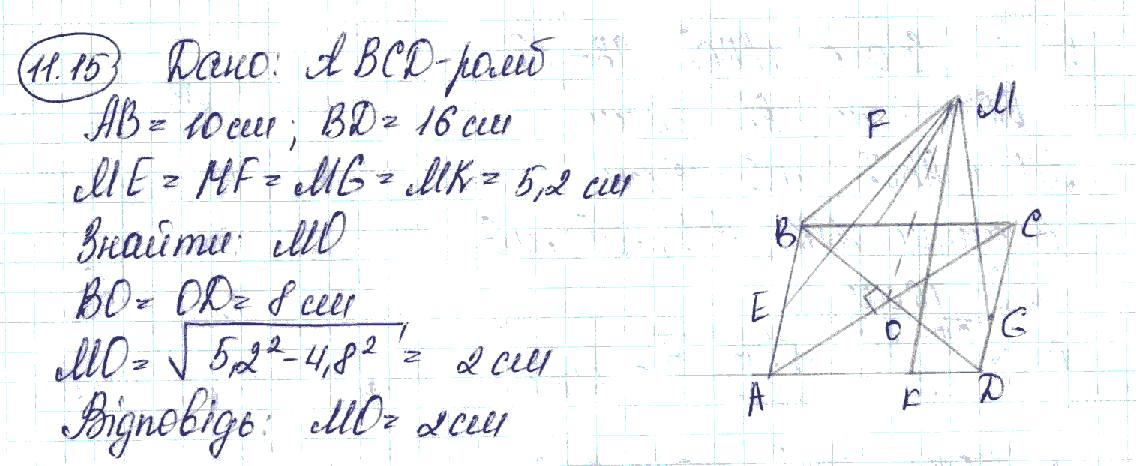 11.15 Дано: ABCD-ромб
AB = 10 см ; BD = 16 см
ME = MF = MG = MK = 5,2 см
Знайти: MO
BO = OD = 8 см
MO = √5,2² - 4,8² = 2 см
Відповідь: MO = 2 см
M
F
B
C
E
O
G
A
K
D